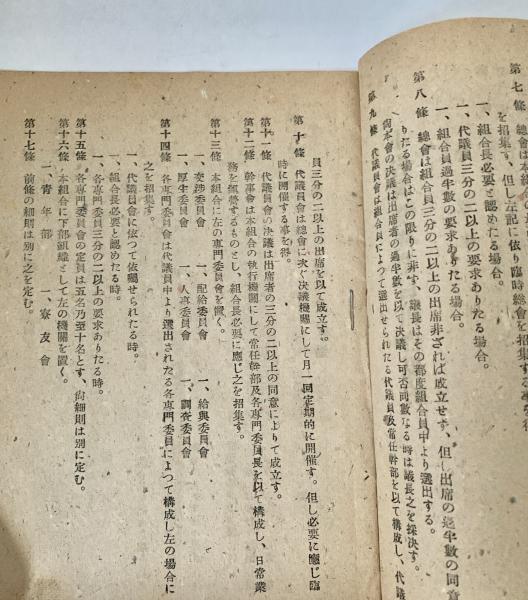 第七條　總會は本組
を招集す、但し左記に依り臨時總會を招集す
一、組合長必要と認めたる場合。
一、代議員三分の二以上の要求ありたる場合。
一、組合員過半數の要求ありたる場合。
第八條　總會は組合員三分の二以上の出席非ざれば成立せず、但し出席の過半數の同意
りたる場合はこの限りに非ず、議長はその都度組合員中より選出する。
尙本會の決議は出席者の過半數を以て決議し可否同數なる時は議長之を採決す。
第九條　代議員會は組合員によつて選出せられたる代議員及常任幹部を以て構成し、代議
員三分の二以上の出席を以て成立す。
第十條　代議員會は總會に次ぐ決議機關にして月一回定期的に開催す。但し必要に應じ臨
時に開催する事を得。
第十一條　代議員會の決議は出席者の三分の二以上の同意によりて成立す。
第十二條　幹事會は本組合の執行機關にして常任幹部及各專門委員長を以て構成し、日常業
務を執營するものとし、組合長必要に應じ之を招集す。
第十三條　本組合に左の專門委員會を置く。
一、交涉委員會　一、配給委員會　一、給與委員會
一、厚生委員會　一、人事委員會　一、調査委員會
第十四條　各專門委員會は代議員中より選出されたる各專門委員によつて構成し左の場合に
之を招集す。
一、代議員會に依つて依囑せられたる時。
一、組合長必要と認めたる時。
一、各專門委員三分の二以上の要求ありたる時。
第十五條　各專門委員會の定員は五名乃至十名とす、尙細則は別に定む。
第十六條　本組合に下部組織として左の機關を置く。
一、靑年部　二、寮友會
第十七條　前條の細則は別に之を定む。